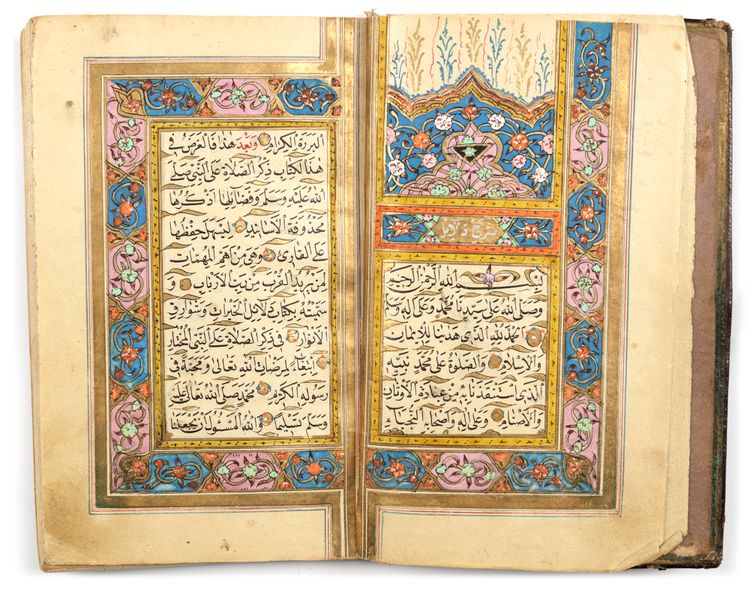 شرح دلايل
بسم الله الرحمن الرحيم
وصلى الله على سيدنا محمد وعلى آله وسلم
الحمد لله الذي هدانا للايمان
والاسلام والصلوة على محمد نبيه
الذي استنقذنا به من عبادة الاوثان
والاصنام وعلى آله واصحابه النجباء
البررة الكرام وبعد هذا فالغرض في
هذا الكتاب ذكر الصلاة على النبي صلى
الله عليه وسلم وفضائلها نذكرها
محذوفة الاسانيد ليسهل حفظها
على القارئ وهي من اهم المهمات
لمن يريد القرب من رب الارباب و
سميته بكتاب دلائل الخيرات وشوارق
الانوار في ذكر الصلاة على النبي المختار
ابتغاء لمرضات الله تعالى ومحبة في
رسوله الكريم محمد صلى الله تعالى عليه
وسلم تسليما والله المسئول ان يجعلنا